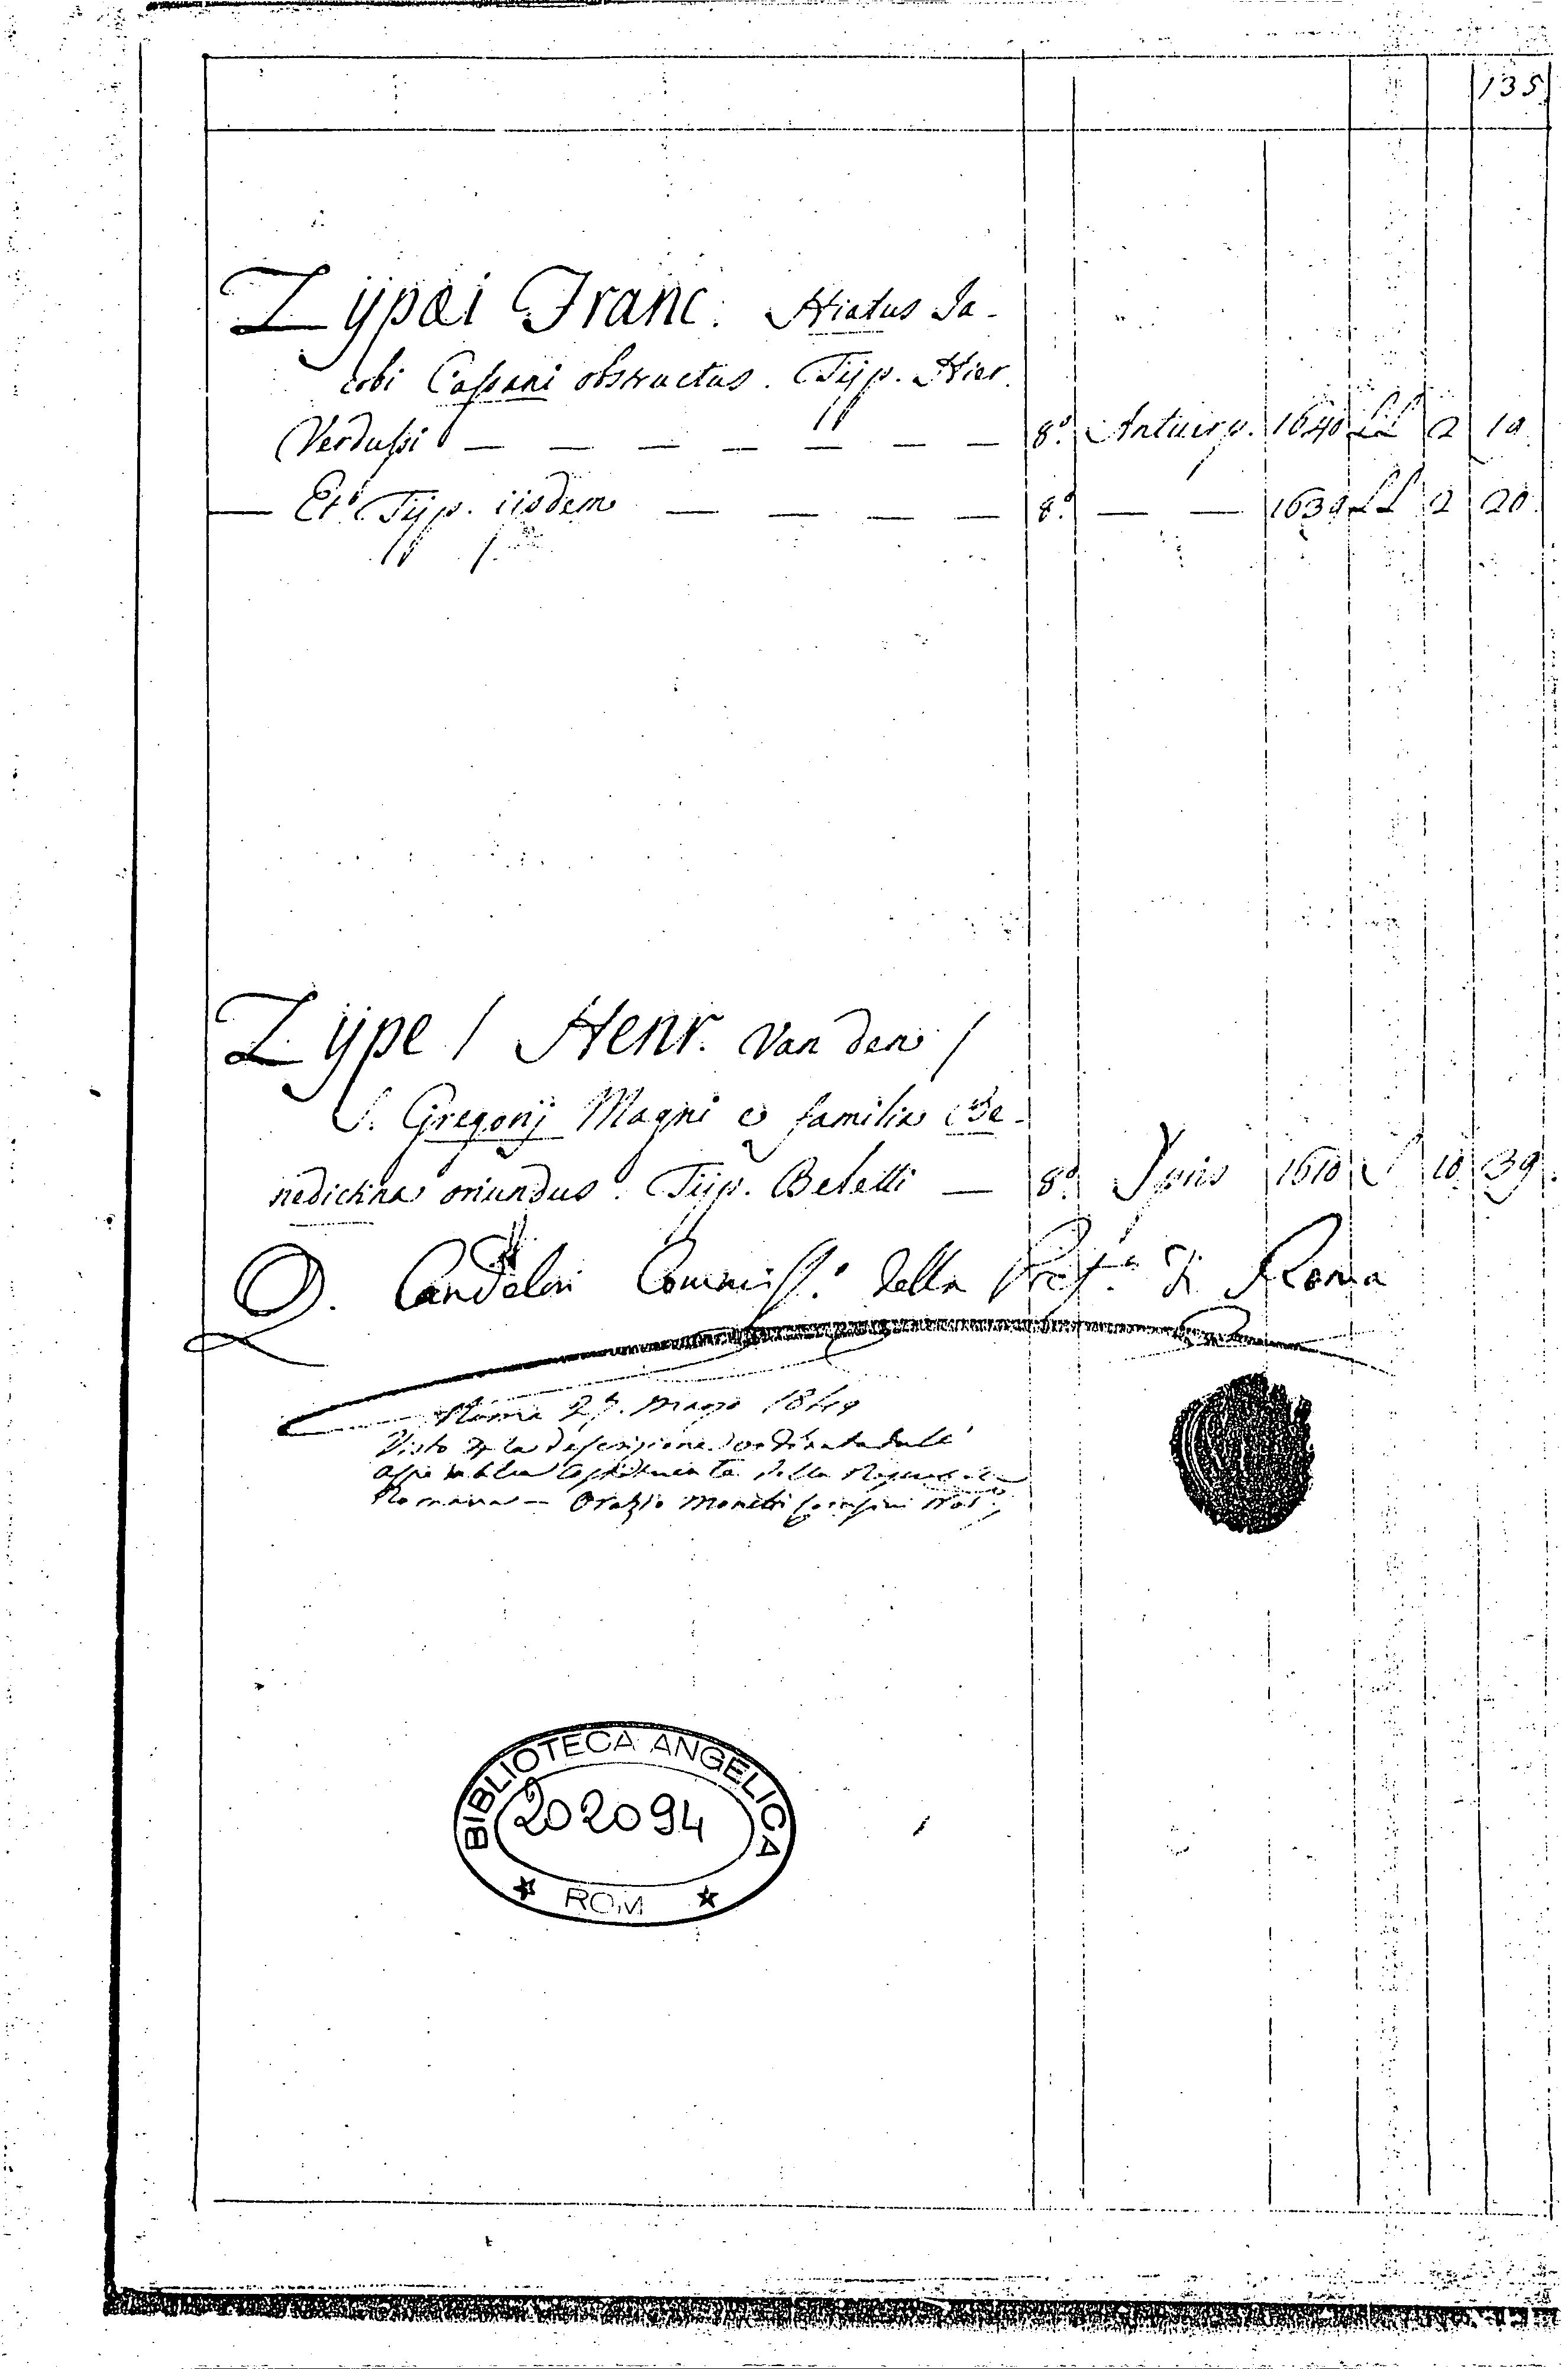 135
Zypæi Franc. Hiatus Ja-
cobi Cassani obstructus. Typ. Hier.
Verdussi — — — — — — — 8.º Antuerp. 1640 LL 2 19
— Et Typ. iisdem — — — — 8.º — — 1639 LL 2 20
Zype / Henr. Van den /
S. Gregorij Magni e familia Be-
nedictina oriundus. Typ. Beletti — 8.º Ypris 1610 S 10 39.
Candelori Commiss.º della di Roma
Roma 27. 1849
Visto la descrizione ordinata dall'
Assemblea Costituente della
Romana — Orazio Not.
BIBLIOTECA ANGELICA
202094
ROM